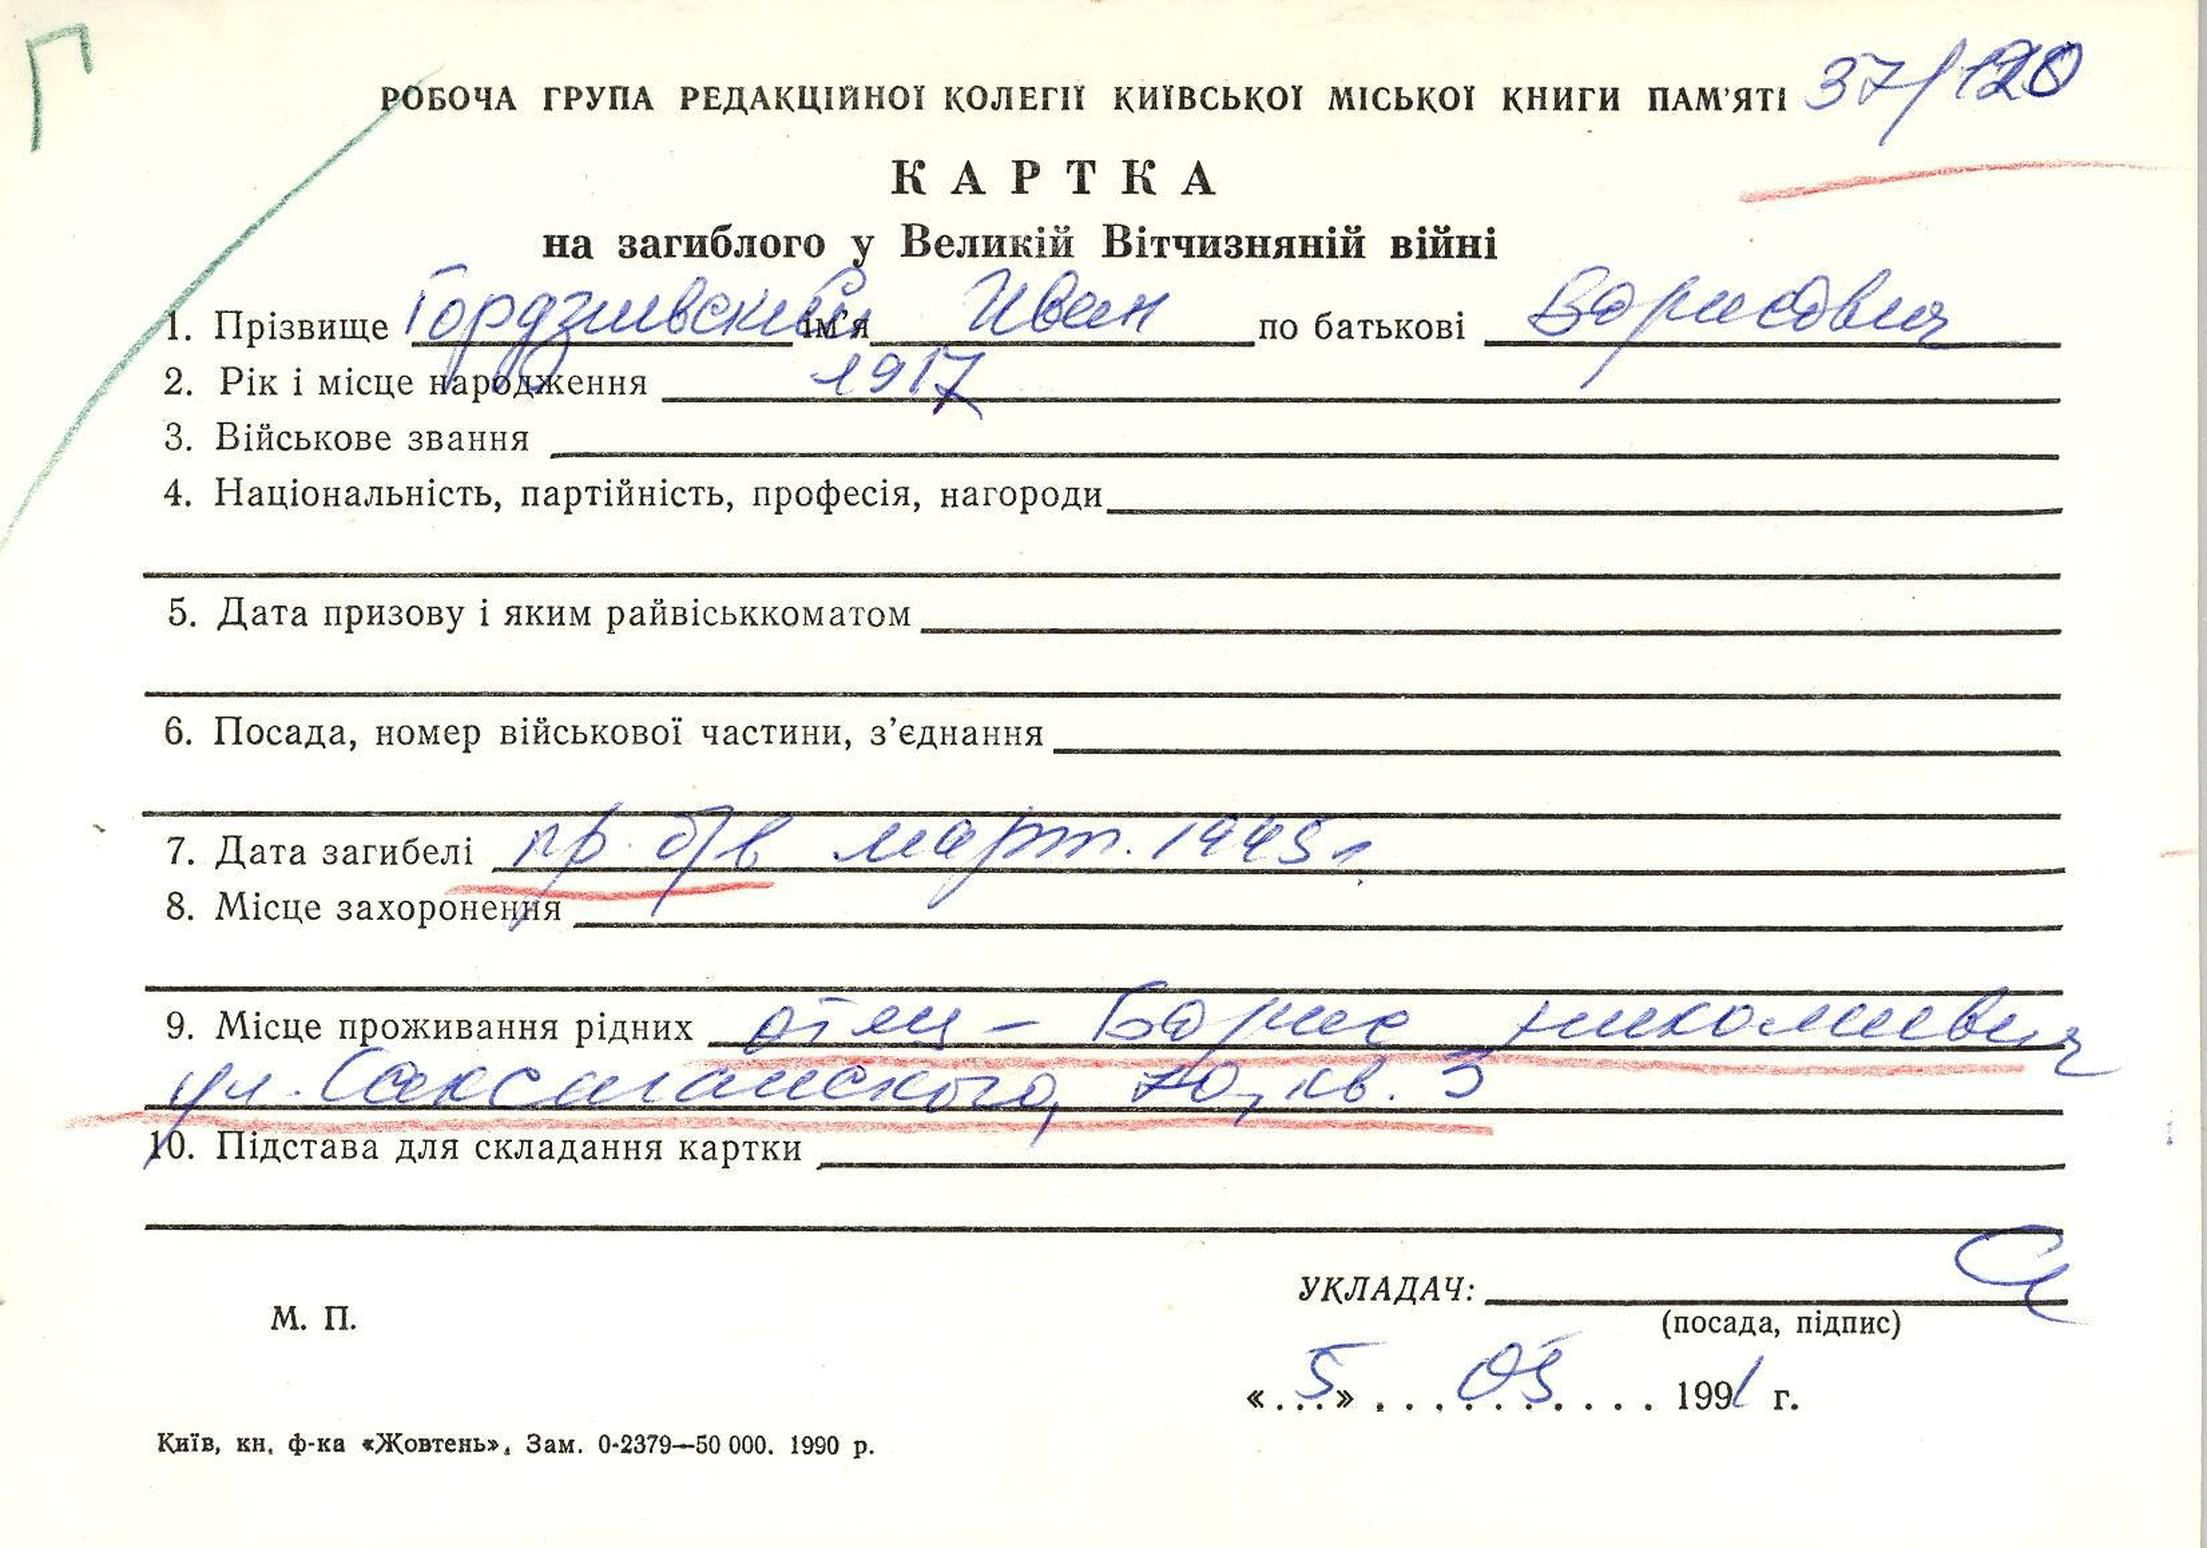 Г
РОБОЧА ГРУПА РЕДАКЦІЙНОЇ КОЛЕГІЇ КИЇВСЬКОЇ МІСЬКОЇ КНИГИ ПАМ'ЯТІ 37/120
КАРТКА
на загиблого у Великій Вітчизняній війні
1. Прізвище Гордзиевский ім'я Иван по батькові Борисович
2. Рік і місце народження 1917
3. Військове звання
4. Національність, партійність, професія, нагороди
5. Дата призову і яким райвіськкоматом
6. Посада, номер військової частини, з'єднання
7. Дата загибелі пр. б/в март. 1945 г.
8. Місце захоронення
9. Місце проживання рідних отец - Борис Николаевич
ул. Саксаганского, 70, кв. 3
10. Підстава для складання картки
УКЛАДАЧ:
М. П.
(посада, підпис)
«5» 05 1991 г.
Київ, кн. ф-ка «Жовтень». Зам. 0-2379—50 000. 1990 р.